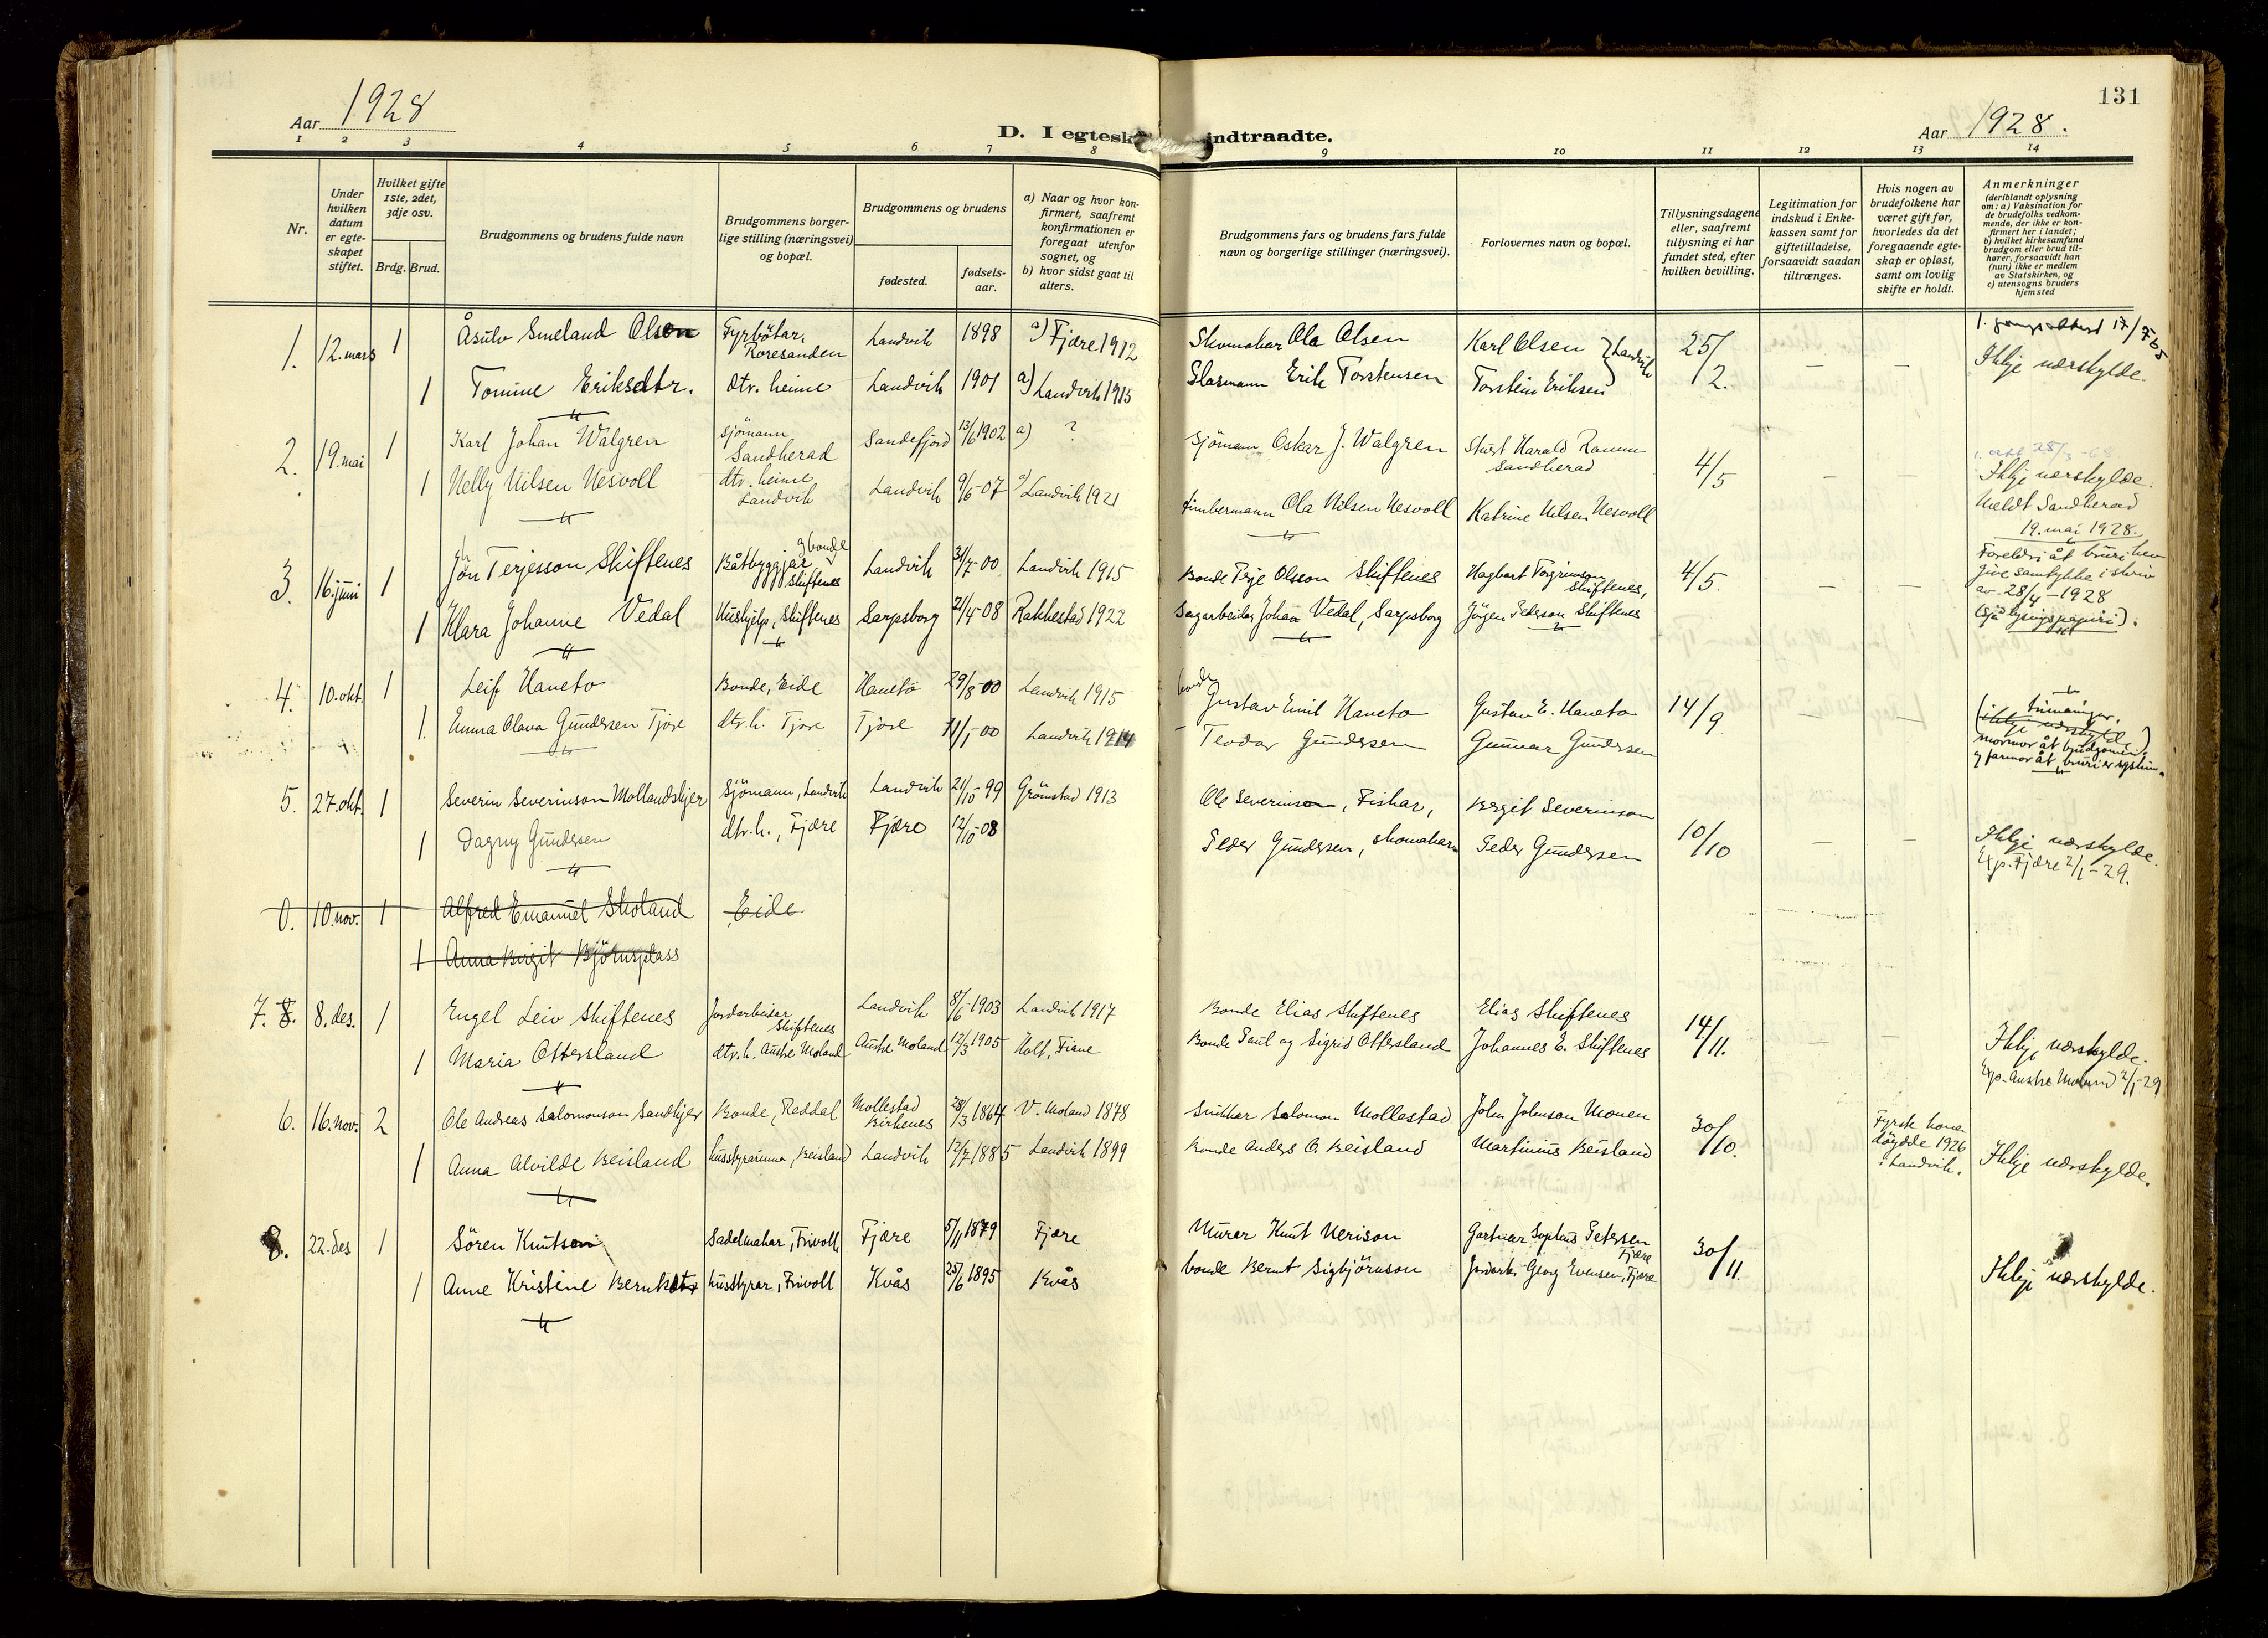 131
Aar 1928
D. I egtesk
indtraadte.
Aar 1928.
1 2 3 4 5 6 7 8 9 10 11 12 13 14
Nr.
Under hvilken datum er egte-skapet stiftet.
Hvilket gifte 1ste, 2det, 3dje osv.
Brdg. Brud.
Brudgommens og brudens fulde navn
Brudgommens borger-lige stilling (næringsvei) og bopæl.
Brudgommens og brudens
fødested.
fødsels-aar.
a) Naar og hvor kon-firmert, saafremt konfirmationen er foregaat utenfor sognet, og
b) hvor sidst gaat til alters.
Brudgommens fars og brudens fars fulde navn og borgerlige stillinger (næringsvei).
Forlovernes navn og bopæl.
Tillysningsdagene eller, saafremt tillysning ei har fundet sted, efter hvilken bevilling.
Legitimation for indskud i Enke-kassen samt for giftetilladelse, forsaavidt saadan tiltrænges.
Hvis nogen av brudefolkene har været gift før, hvorledes da det foregaaende egte-skap er opløst, samt om lovlig skifte er holdt.
Anmerkninger (deriblandt oplysning om: a) Vaksination for de brudefolks vedkom-mende, der ikke er kon-firmert her i landet; b) hvilket kirkesamfund brudgom eller brud til-hører, forsaavidt han (hun) ikke er medlem av Statskirken, og c) utensogns bruders hjemsted
1. 12. mars 1 Åsulv Smeland Olsen Fyrbötar, Roresanden Landvik 1898 a) Fjære 1912 Skomakar Ola Olsen Karl Olsen } Landvik 25/2. — — Ikkje nærskylde.
1 Tomine Eriksdtr. dtr. heime Landvik 1901 a) Landvik 1915 Erik Torstensen Torstein Eriksen
2. 19. mai 1 Karl Johan Walgren sjömann Sandherad Sandefjord 13/6 1902 a) ? Sjömann Oskar J. Walgren Harald Ramm Sandherad 4/5 — — Ikkje nærskylde.
1 Nelly Nilsen Nesvoll dtr. heime Landvik Landvik 9/6-07 a) Landvik 1921 timbermann Ola Nilsen Nesvoll Katrine Nilsen Nesvoll Meldt Sandherad 19. mai 1928.
3. 16. juni 1 Jon Terjesson Skiftenes Båtbyggjar og bonde Skiftenes Landvik 31/7-00 Landvik 1915 Bonde Terje Olsson Skiftenes Hagbart Torgrimson Skiftenes, 4/5. — — Foreldri åt bruri hev give samtykkje i skriv av 28/4-1928
1 Klara Johanne Vedal Hushjelp, Skiftenes Sarpsborg 21/4-08 Rakkestad 1922 Sagarbeidar Johan Vedal, Sarpsborg Jörgen Pederson Skiftenes (sjå lysingspapiri).
4. 10. okt. 1 Leif Haneto Bonde, Eide Haneto 29/8-00 Landvik 1915 bonde Gustav Emil Haneto Gustav E. Haneto 14/9 — — trimeninger. (ikkje nærskylde)
1. Emma Olava Gundersen Tjore dtr. h. Tjore Tjore 11/1-00 Landvik 1914 Teodor Gundersen Gunnar Gundersen mormor åt brudgomen og farmor åt bruri er systrar
5. 27. okt. 1 Severin Severinson Mollandskjer Sjömann, Landvik Landvik 21/10-99 Grömstad 1913 Ole Severinsen, Fiskar, Bergit Severinson 10/10 — Ikkje nærskylde.
1 Dagny Gundersen dtr. h., Fjære Fjære 12/10-08 Peder Gundersen, skomakar Peder Gundersen Exp. Fjære 2/1-29.
0. 10. nov. 1 Alfred Emanuel Skoland Eide
1 Anna Birgit Björnsplass
7. 8. 8. des. 1 Engel Leiv Skiftenes Jordarbeidar Skiftenes Landvik 8/6-1903 Landvik 1917 Bonde Elias Skiftenes Elias Skiftenes 14/11. — — Ikkje nærskylde.
1 Maria Ottersland dtr. h. Austre Moland Austre Moland 12/3 1905 Holt, Fiane Bonde Paul og Sigrid Ottersland Johannes E. Skiftenes Exp. Austre Moland 2/1-29
6. 16. nov. 2 Ole Andreas Salomonson Sandkjer Bonde, Reddal Mollestad Birkenes 28/3 1864 V. Moland 1878 Snikkar Salomon Mollestad John Johnson Monen 30/10. Fyrste kona döydde 1926 i Landvik. Ikkje nærskylde.
1 Anna Alvilde Beisland husstyrarinna, Beisland Landvik 12/7 1885 Landvik 1899 Bonde Anders O. Beisland Martinius Beisland
8. 22. des 1 Sören Knutson Sadelmakar, Frivoll Fjære 5/11 1879 Fjære Murer Knut Nerison Gartnar Sophus Petersen Fjære 30/11. Ikkje nærskylde.
1 Anne Kristine Berntsdtr husstyrar, Frivoll Kvås 25/6 1895 Kvås bonde Bernt Sigbjörnson Georg Evensen, Fjære